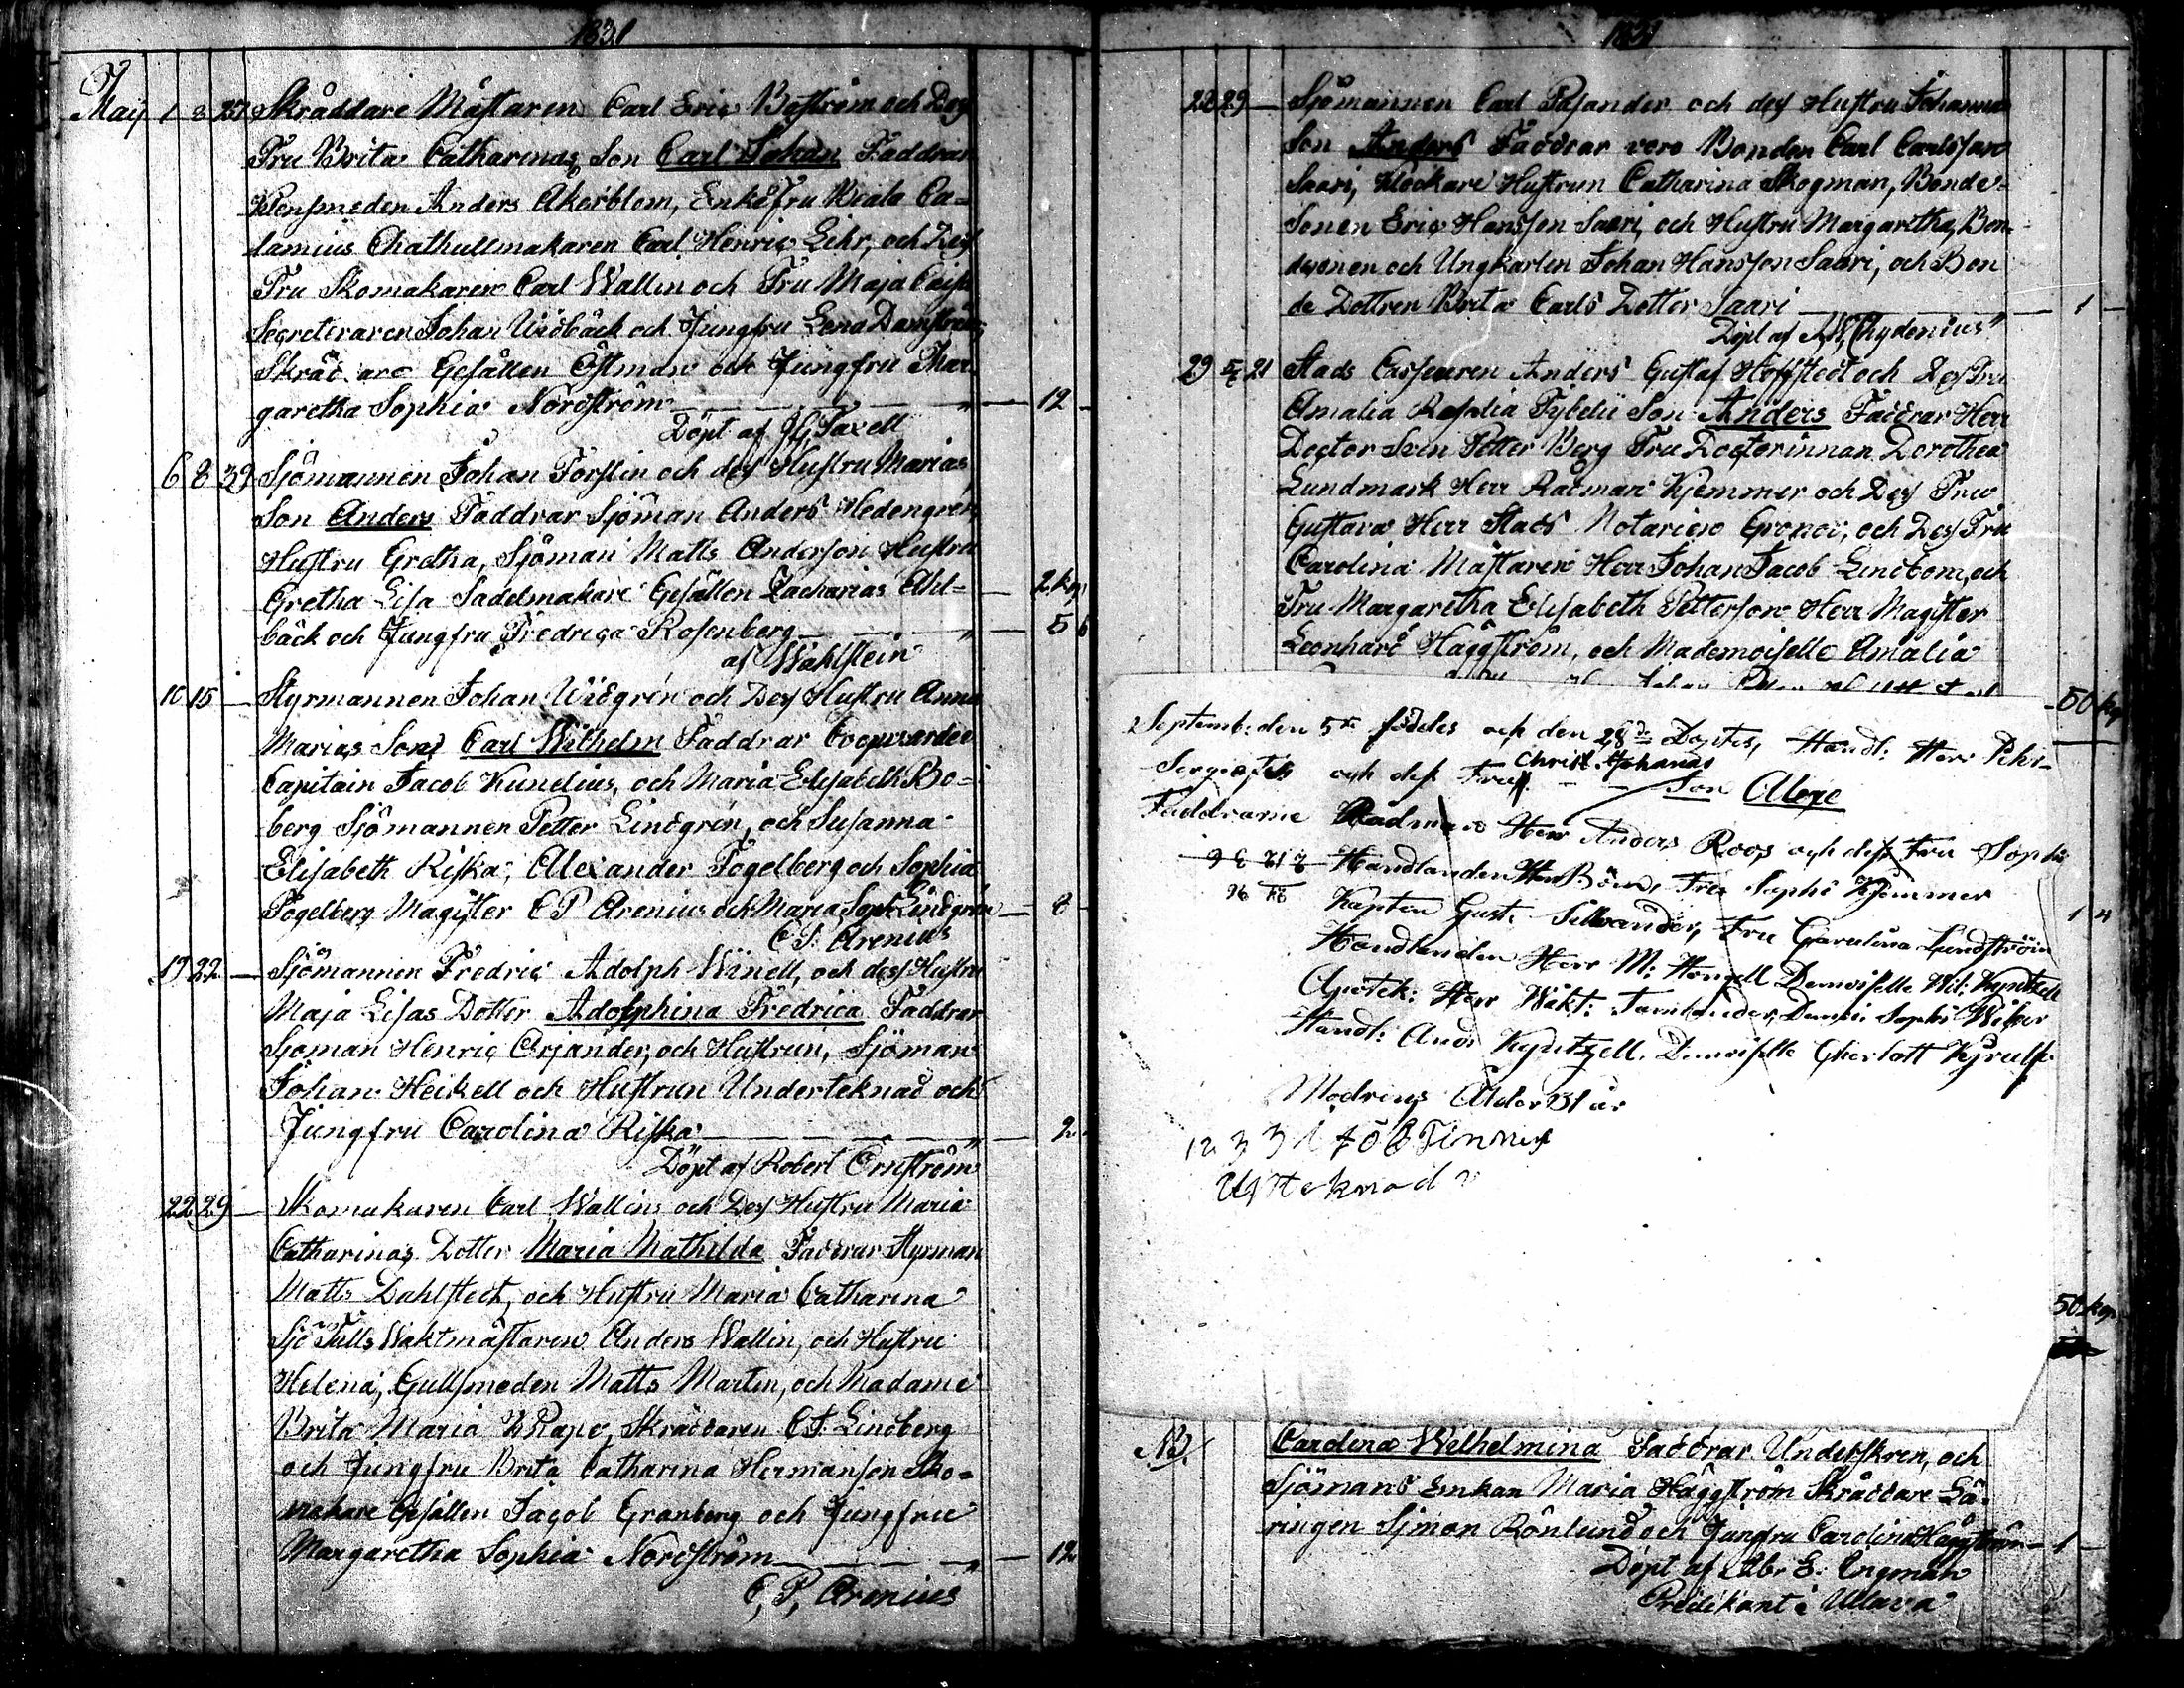 1831
May 1 8 27 Skräddare Mästaren Carl Eric Boström och Dess
Fru Brita Catharinas Son Carl Johan Faddrar
Anders Åkerblom, Enkefru Beata Ca-
lamnius Chathullmakaren Carl Henric Lihr, och Dess
Fru Skomakaren Carl Wallin och Fru Maja Caisa
Secreteraren Johan Widbäck och Jungfru Lena Damström
Gesällen Östman och Jungfru Mar
garetha Sophia Nordström " 12
Döpt af J G Taxell
6 8 39 Sjömannen Johan Forslin och dess Hustru Marias
Son Anders Faddrar Sjöman Anders Hedengren,
Hustru Gretha, Sjöman Matts Anderson Hustru
Gretha Lisa Sadelmakare Gesällen Zacharias Ahl- 2 kop
bäck och Jungfru Fredrica Rosenberg " 5 6
af Wahlstein
10 15 Styrmannen Johan Widgrén och Dess Hustru Anna
Marias Son Carl Wilhelm Faddrar Coopvardie
Capitain Jacob Kunelius, och Maria Elisabeth Bo-
berg Sjömannen Petter Lindgrén, och Susanna
Elisabeth Riska, Alexander Fogelberg och Sophia
Fogelberg Magister C P Arenius och Maria Soph Lindgrén 8
C P. Arenius
19 22 Sjömannen Fredric Adolph Winell, och dess Hustru
Maja Lisas Dotter Adolphina Fredrica Faddrar
Sjöman Henric Orjander, och Hustrun, Sjöman
Johan Heikell och Hustrun Underteknad och
Jungfru Carolina Riska " 2
Döpt af Robert Ernström
22 29 Skomakaren Carl Wallins och Dess Hustru Maria
Catharinas Dotter Maria Mathilda Faddrar Styrman
Matts Dahlstedt, och Hustru Maria Catharina
Sjö Tulls Waktmästaren Anders Wallin, och Hustru
Helena, Gullsmeden Matts Martin, och Madame
Brita Maria Rape, Skräddaren C J. Lindberg
och Jungfru Brita Catharina Hermanson Sko-
makare Gesällen Jacob Granberg och Jungfru
Margaretha Sophia Nordström " 12
C, P, Arenius
1831
22 29 Sjömannen Carl Pasander och dess Hustru Johannas
Son Anders Faddrar voro Bonden Carl Carlsson
Saari, Klockare Hustrun Catharina Skogman, Bonde-
Sonen Eric Hansson Saari, och Hustru Margaretha, Bon-
desonen och Ungkarlen Johan Hansson Saari, och Bon
de Dottren Brita Carls Dotter Saari 1
Döpt af Chydenius"
29 5/6 21 Stads Casseuren Anders Gustaf Höckstedt och Dess Fru
Amalia Rosalia Tybelii Son Anders Faddrar Herr
Doctor Sven Petter Berg Fru Doctorinnan Dorothea
Lundmark Herr Radman Kjemmer och Dess Fru
Gustava Herr Stads Notarien Gronov, och Dess Fru
Carolina Mästaren Herr Johan Jacob Lindbom, och
Fru Margaretha Elisabeth Petterson Herr Magister
Leonhard Häggström, och Mademoiselle Amalia
50 kop
Septemb: den 5te föddes och den 28de Döptes, Handl: Herr Pehr
och dess Fru Christ. Johanas
Son
Faddrarne Rådman Herr Anders Roos och dess Fru Soph
Handlanden Herr Böm, Fru Sophi Kjemmer
Kapten Gust. Silvander, Fru Carolina Lundström
Handlanden Herr M: Hongell Demoiselle Wil: Kyntzell
Apotek: Herr Wikt: Demoi: Sophi
Handl: And: Kyntzell. Demoiselle Charlott
Modrens Ålder 31 år
50 kop
NB. Carolina Wilhelmina Faddrar Underskren, och
Sjömans Enkan Maria Häggström Skräddare Lä-
ringen Simon Rönlund och Jungfru Carolina Häggström 1
Döpt af Abr E. Engman
Predikant i Ullava